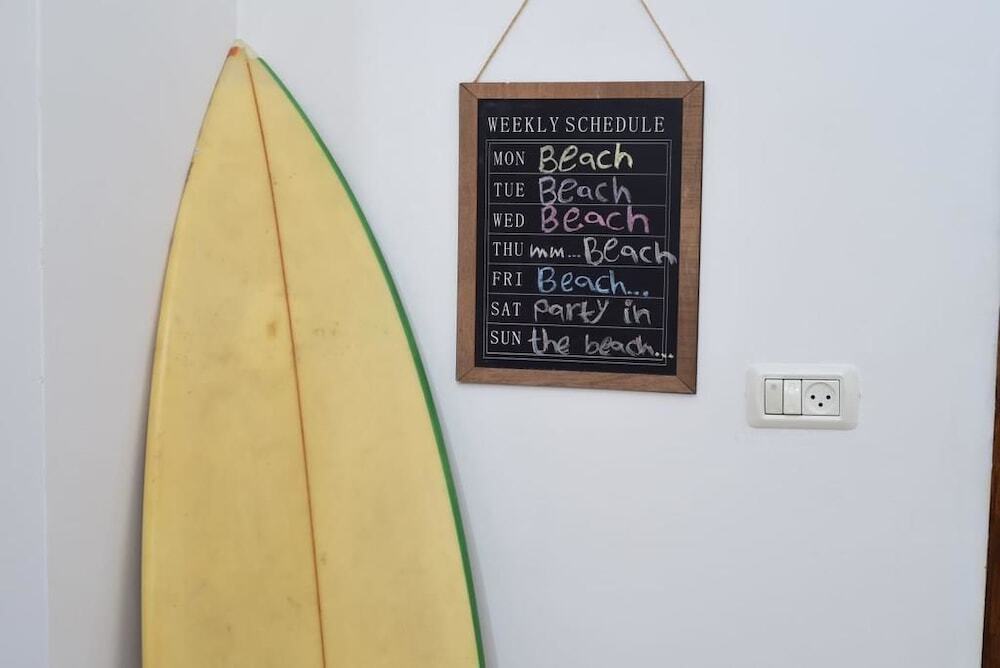 WEEKLY SCHEDULE
MON Beach
TUE Beach
WED Beach
THU mm...Beach
FRI Beach...
SAT party in
SUN the beach...